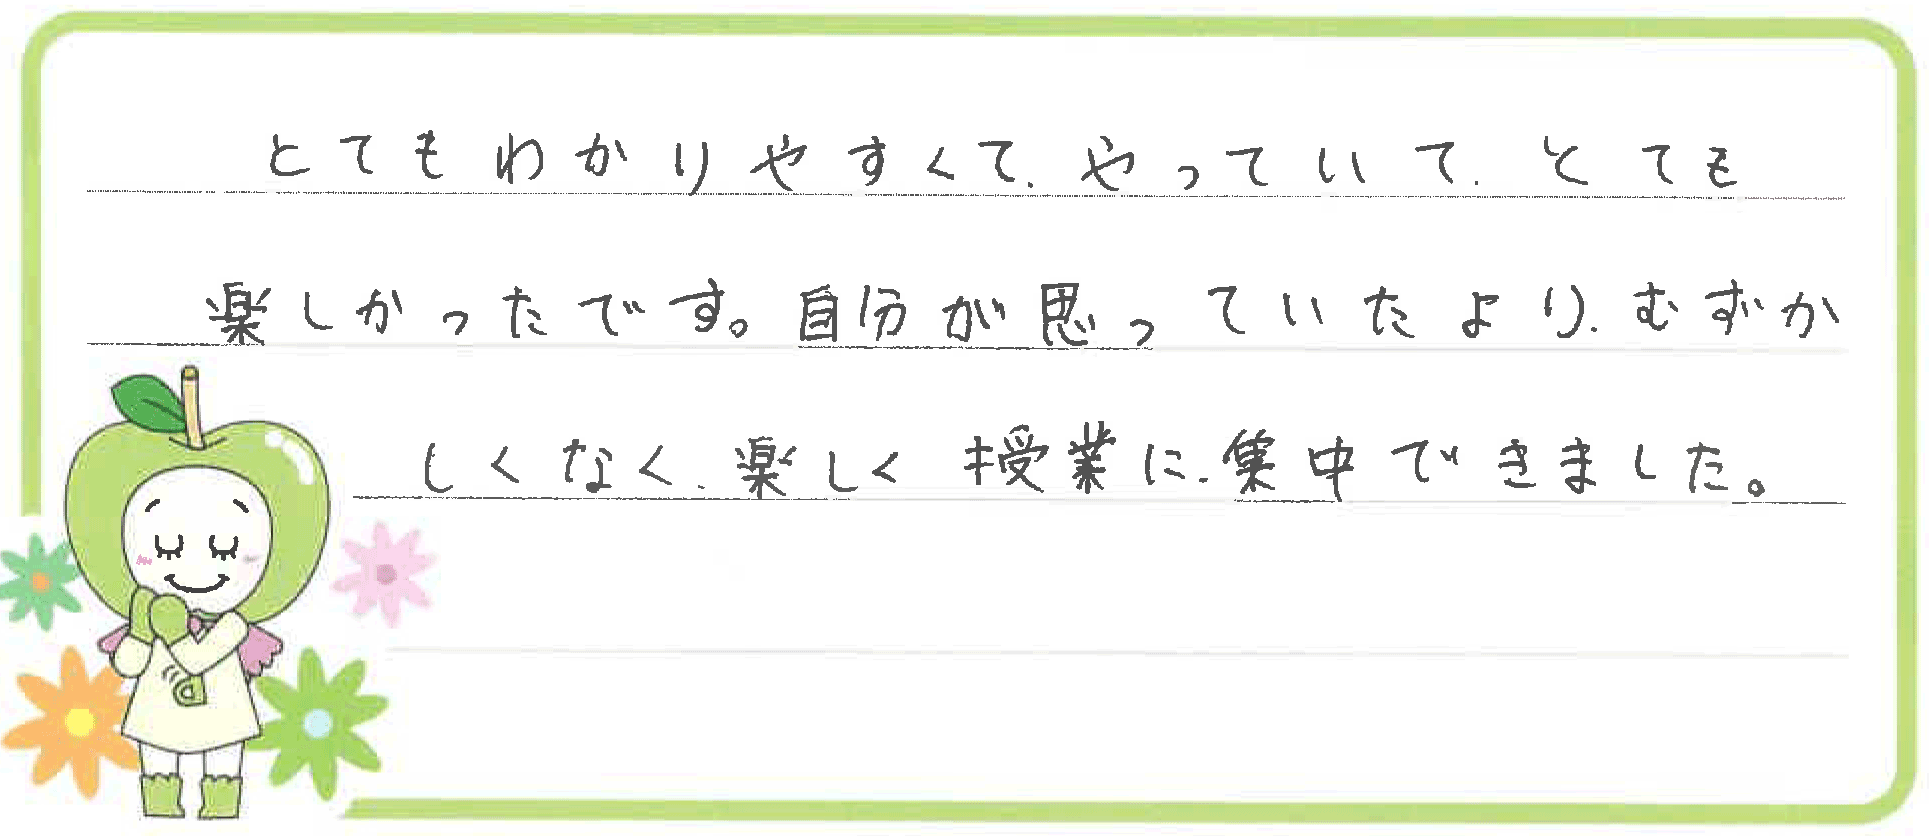 とてもわかりやすくて、やっていて、とても
楽しかったです。自分が思っていたより、むずか
しくなく、楽しく授業に、集中できました。